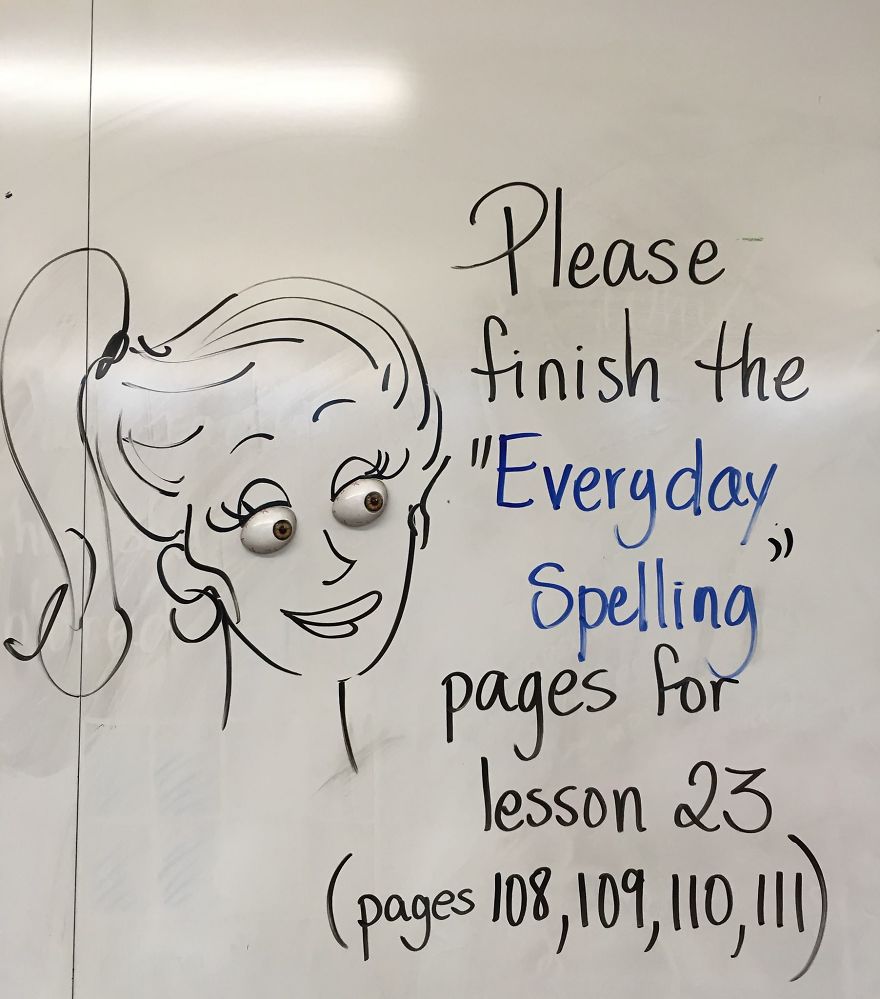 Please
finish the
"Everyday
Spelling"
pages for
lesson 23
(pages 108,109,110,111)